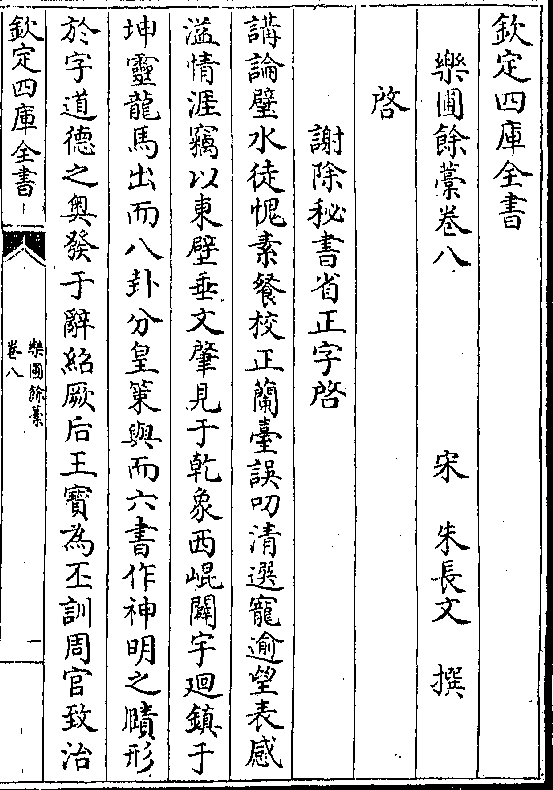 欽定四庫全書
樂圃餘藁卷八
宋 朱長文 撰
啓
謝除秘書省正字啓
講論璧水徒愧素餐校正蘭臺誤叨清選寵逾望表感
溢情涯竊以東壁垂文肇見于乾象西崐闢宇廻鎮于
坤靈龍馬出而八卦分皇策與而六書作神明之賾形
於字道德之奥發于辭紹厥后王寳為丕訓周官致治
欽定四庫全書
樂圃餘藁
卷八
一